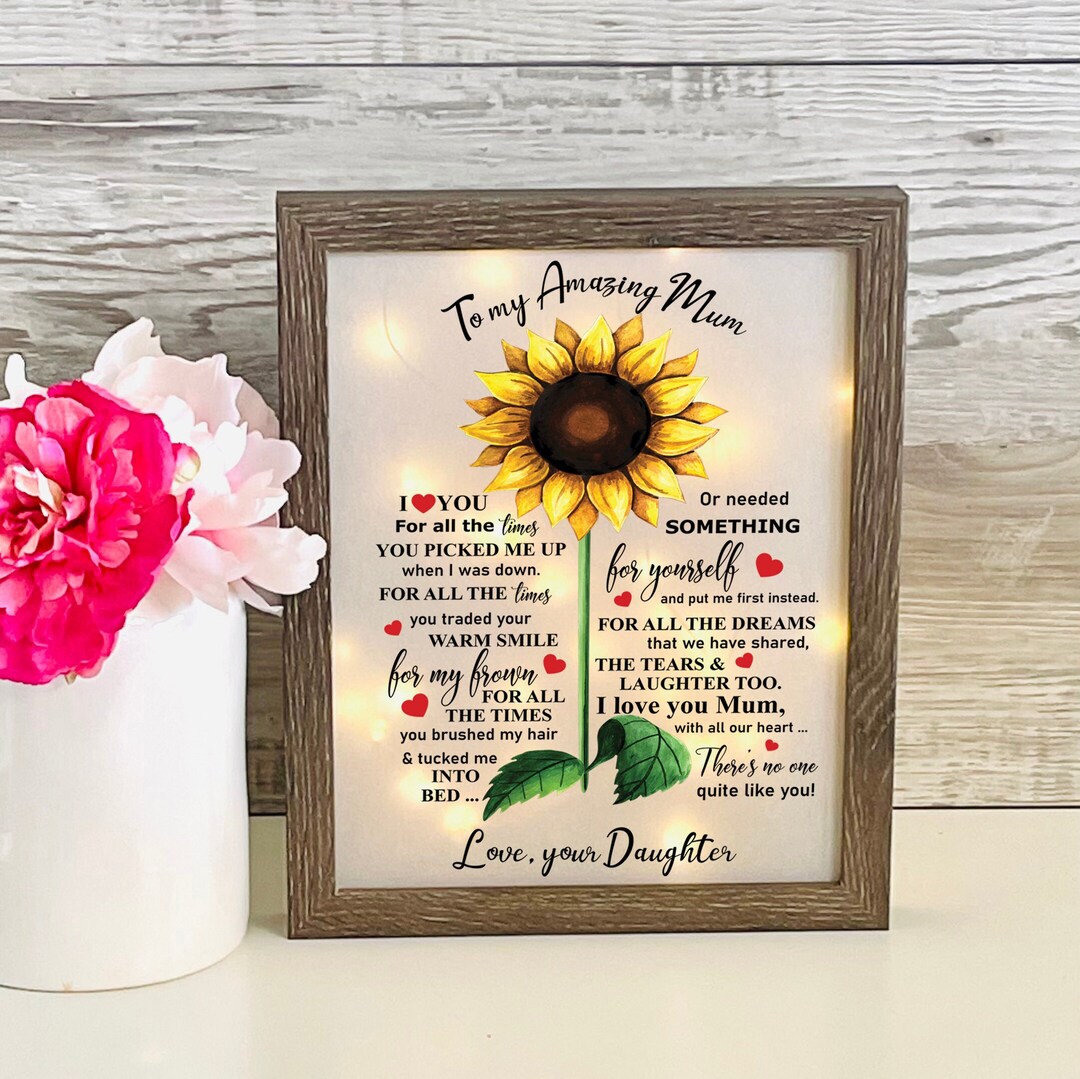 To my Amazing Mum
I ❤ YOU
For all the times
YOU PICKED ME UP
when I was down.
FOR ALL THE times
you traded your
WARM SMILE
for my frown
FOR ALL
THE TIMES
you brushed my hair
& tucked me
INTO
BED ...
Or needed
SOMETHING
for yourself
and put me first instead.
FOR ALL THE DREAMS
that we have shared,
THE TEARS &
LAUGHTER TOO.
I love you Mum,
with all our heart ...
There's no one
quite like you!
Love, your Daughter